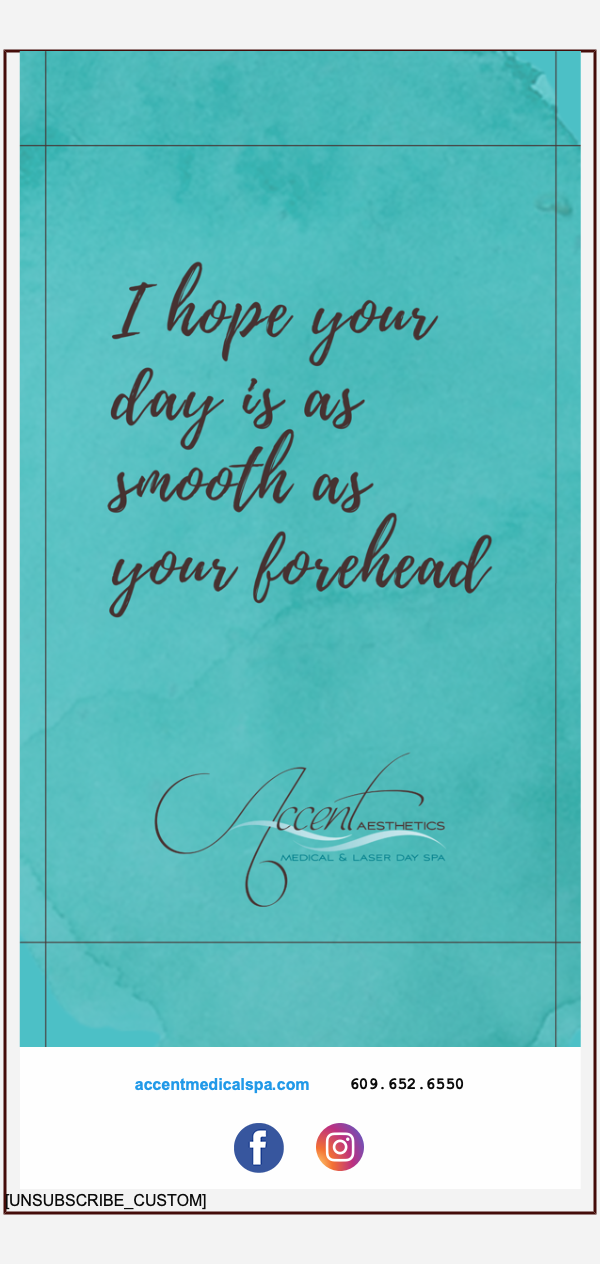 I hope your
day is as
smooth as
your forehead
Accent AESTHETICS
MEDICAL & LASER DAY SPA
accentmedicalspa.com 609.652.6550
[UNSUBSCRIBE_CUSTOM]